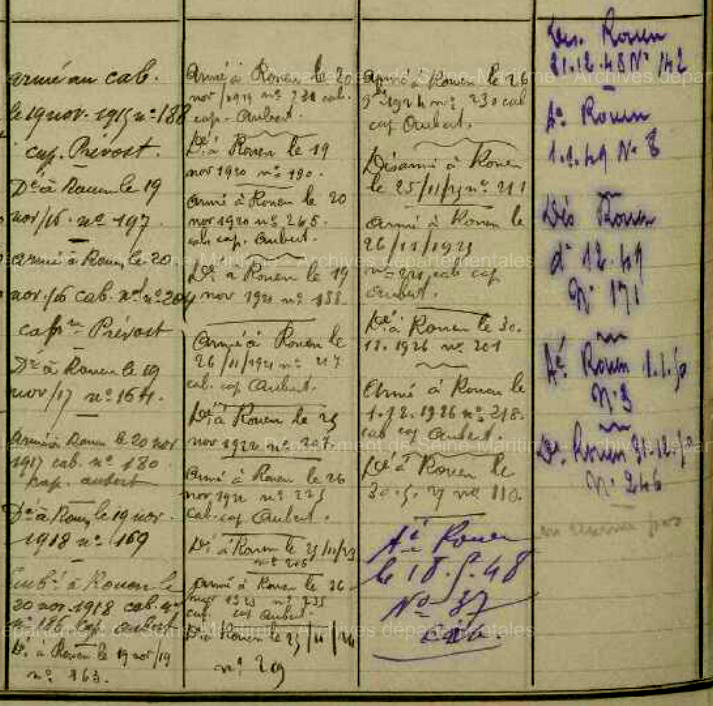 armé au cab.
le 19 nov. 1915 n° 188
cap. Prévost.
Dé à Rouen le 19
nov/16. n° 197.
armé à Rouen le 20.
nov/16 cab. n° 204
cap Prévost
Dé à Rouen le 19
nov/17 n° 164.
armé à Rouen le 20 nov
1917 cab. n° 180
cap. aubert
Dé à Rouen le 19 nov.
1918 n° 169
à Rouen le
20 nov. 1918 cab.
n° 186 cap. aubert
Dé à Rouen le 19 nov/19
n° 163.
armé à Rouen le 20
nov 1919 n° cab.
cap. Aubert.
Dé à Rouen le 19
nov 1920 n° 190.
armé à Rouen le 20
nov 1920 n° 265.
cab cap. Aubert.
Dé à Rouen le 19
nov 1921 n° 188.
Armé à Rouen le
26/11/1921 n° 217
cab. cap Aubert.
Dé à Rouen le 25
nov 1922 n° 207.
armé à Rouen le 26
nov 1922 n° 225
cab. cap Aubert.
Dé à Rouen le 25/11/23
n° 206
armé à Rouen le 26
nov 1923 n° 235
cab. cap Aubert.
Dé à Rouen le 25/11/24
n° 219
armé à Rouen le 26
1924 n° 230 cab
cap Aubert.
Désarmé à Rouen
le 25/11/25 n° 211
armé à Rouen le
26/11/1925
n° cab cap
Aubert.
Dé à Rouen le 30.
1926 n° 201
Armé à Rouen le
1.12.1926 n° 218.
cab cap Aubert.
Dé à Rouen le
30.5.27 n° 110.
Aé Rouen
le 18.5.48
N° 37
Des. Rouen
31.12.48 N° 142
Aé Rouen
1.1.49 N° 8
Dés Rouen
12.49
N° 171
Aé Rouen 1.1.50
N° 3
Dé Rouen 31.12.50
N° 246
Département de Seine-Maritime - Archives départementales